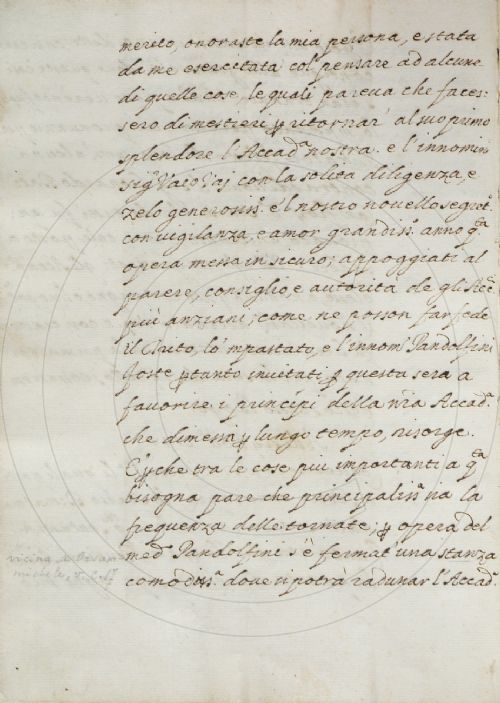 merito, onoraste la mia persona, e stata
da me esercitata col pensare ad alcune
di quelle cose, le quali pareva che faces-
sero di mestieri p ritornar' al suo primo
splendore l'Accad.ª nostra. e l'innomin.
Sig.r con la solita diligenza, e
zelo generosiss.º e'l nostro novello segret.º
con vigilanza, e amor grandiss.º anno q.ta
opera messa in sicuro; appoggiati al
parere, consiglio, e autorità de gli Acc.ci
più anziani; come ne posson far fede
il , lo 'mpastato, e l'innom. Pandolfini
foste p tanto invitati p questa sera a
favorire i principi della nrã Accad.ª
che dimessa p lungo tempo, risorge.
E p che tra le cose più importanti a q.ta
bisogna pare che principalm.e sia la
frequenza delle tornate; p opera del
med.º Pandolfini s'è fermat' una stanza
comodiss.ª dove si potrà radunar l'Accad.ª
vicina a